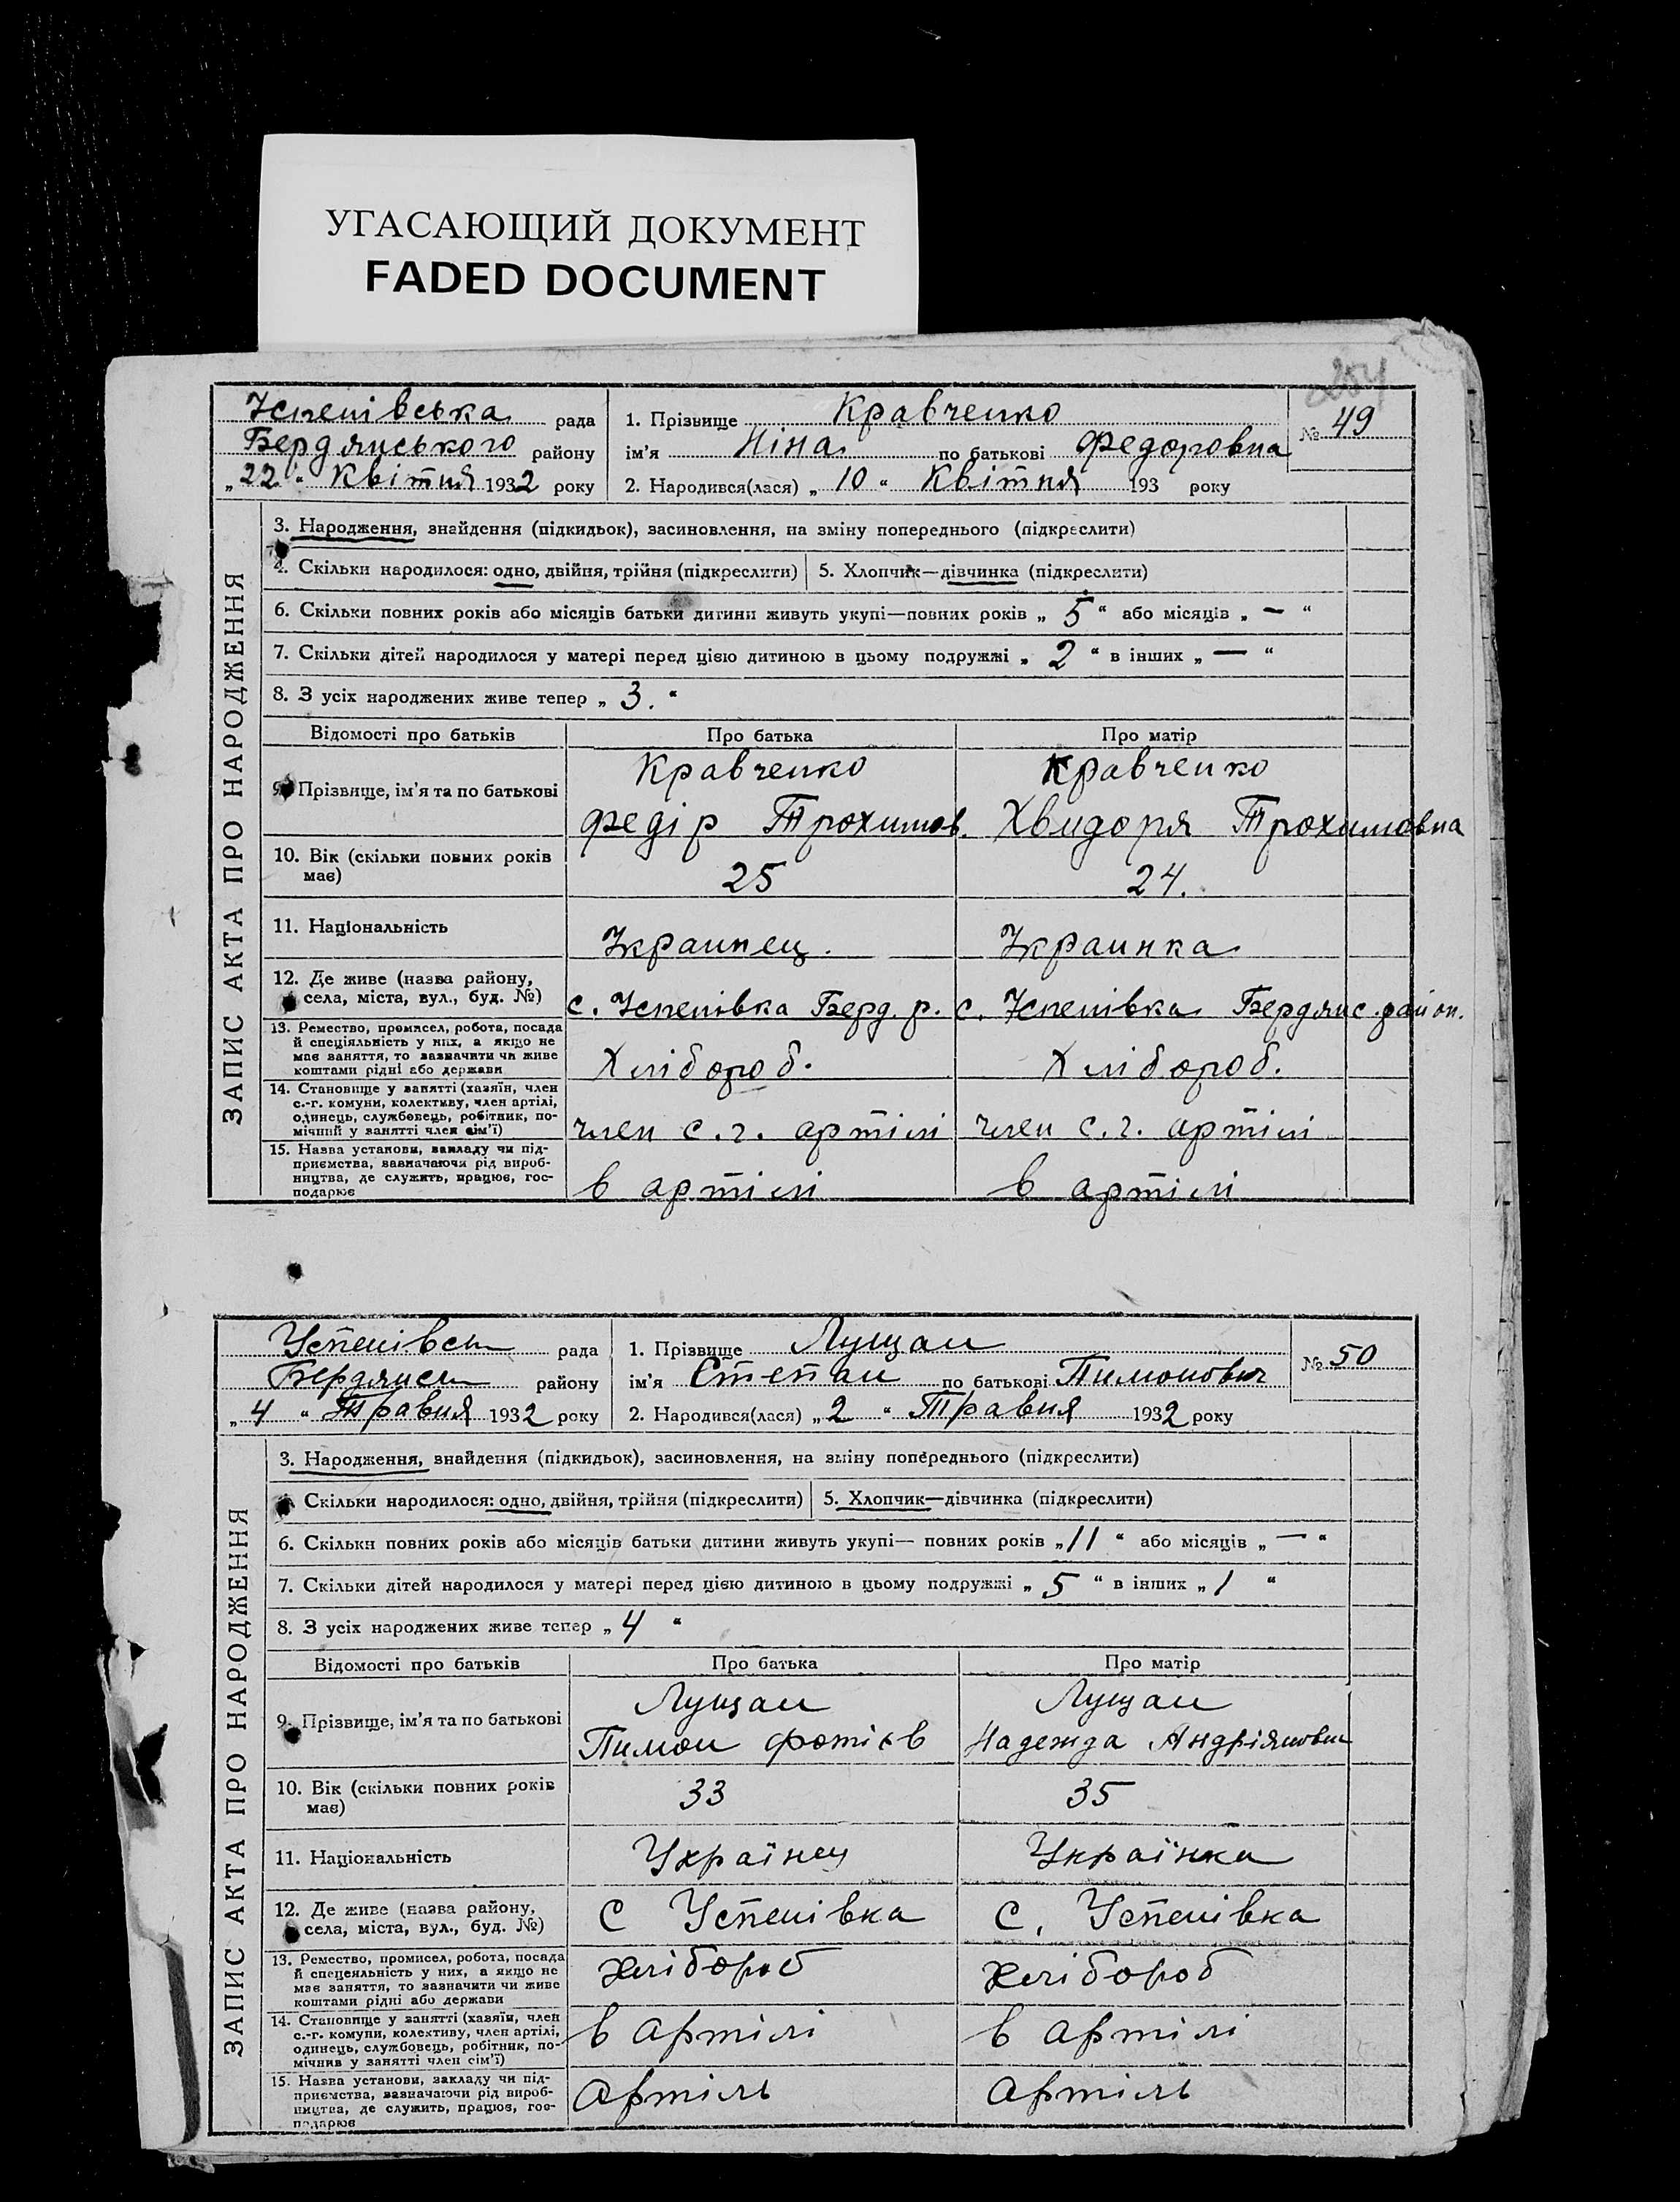 УГАСАЮЩИЙ ДОКУМЕНТ
FADED DOCUMENT
204
Успенівська рада
Бердянського району
„22“ Квітня 1932 року
1. Прізвище Кравченко
ім'я Ніна по батькові Федоровна
2. Народився(лася) „10“ Квітня 193 року
№ 49
ЗАПИС АКТА ПРО НАРОДЖЕННЯ
3. Народження, знайдення (підкидьок), засиновлення, на зміну попереднього (підкреслити)
4. Скільки народилося: одно, двійня, трійня (підкреслити) 5. Хлопчик—дівчинка (підкреслити)
6. Скільки повних років або місяців батьки дитини живуть укупі—повних років „5“ або місяців „—“
7. Скільки дітей народилося у матері перед цією дитиною в цьому подружжі „2“ в інших „—“
8. З усіх народжених живе тепер „3.“
Відомості про батьків Про батька Про матір
Кравченко Кравченко
9. Прізвище, ім'я та по батькові
Федір Трохимов. Хвидоря Трохимовна
10. Вік (скільки повних років
має) 25 24.
11. Національність Украинец. Украинка
12. Де живе (назва району,
села, міста, вул., буд. №) с. Успенівка Берд. р. с. Успенівка Бердянс. район.
13. Ремество, промисел, робота, посада
й спеціяльність у них, а якщо не
має заняття, то зазначити чи живе
коштами рідні або держави Хлібороб. Хлібороб.
14. Становище у занятті (хазяїн, член
с.-г. комуни, колективу, член артілі,
одинець, службовець, робітник, по-
мічний у занятті член сім'ї) член с.г. артілі член с.г. артілі
15. Назва установи, закладу чи під-
приємства, зазначаючи рід вироб-
ництва, де служить, працює, гос-
подарює в артілі в артілі
Успенівськ рада
Бердянськ району
„4“ Травня 1932 року
1. Прізвище Лущан
ім'я Степан по батькові Тимонович
2. Народився(лася) „2“ Травня 1932 року
№ 50
ЗАПИС АКТА ПРО НАРОДЖЕННЯ
3. Народження, знайдення (підкидьок), засиновлення, на зміну попереднього (підкреслити)
Скільки народилося: одно, двійня, трійня (підкреслити) 5. Хлопчик—дівчинка (підкреслити)
6. Скільки повних років або місяців батьки дитини живуть укупі— повних років „11“ або місяців „—“
7. Скільки дітей народилося у матері перед цією дитиною в цьому подружжі „5“ в інших „1“
8. З усіх народжених живе тепер „4“
Відомості про батьків Про батька Про матір
Лущан Лущан
9. Прізвище, ім'я та по батькові
Тимон Фотієв Надежда Андріяновн
10. Вік (скільки повних років
має) 33 35
11. Національність Українец Українка
12. Де живе (назва району,
села, міста, вул., буд. №) с Успенівка с. Успенівка
13. Ремество, промисел, робота, посада
й спецеяльність у них, а якщо не
має заняття, то зазначити чи живе
коштами рідні або держави хлібороб хлібороб
14. Становище у занятті (хазяїн, член
с.-г. комуни, колективу, член артілі,
одинець, службовець, робітник, по-
мічнив у занятті член сім'ї) в артілі в артілі
15. Назва установи, закладу чи під-
приємства, зазначаючи рід вироб-
ництва, де служить, працює, гос-
подарює артіль артіль